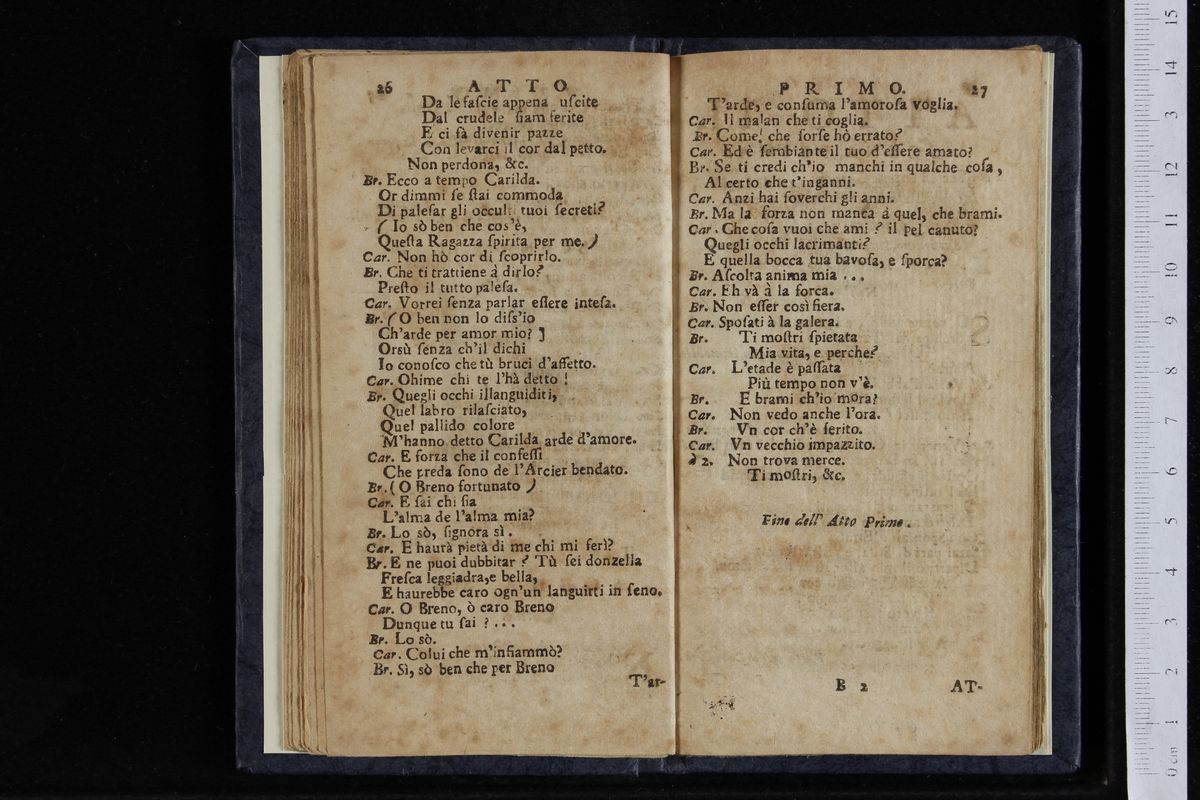 26 ATTO
Da le faſcie appena uſcite
Dal crudele ſiam ferite
E ci fà divenir pazze
Con levarci il cor dal petto.
Non perdona, &c.
Br. Ecco a tempo Carilda.
Or dimmi ſe ſtai commoda
Di paleſar gli occulti tuoi ſecreti?
( Io sò ben che cos'è,
Queſta Ragazza ſpirita per me. )
Car. Non hò cor di ſcoprirlo.
Br. Che ti trattiene à dirlo?
Preſto il tutto paleſa.
Car. Vorrei ſenza parlar eſſere inteſa.
Br. ( O ben non lo diſs'io
Ch'arde per amor mio? ]
Orsù ſenza ch'il dichi
Io conoſco che tù bruci d'affetto.
Car. Ohime chi te l'hà detto !
Br. Quegli occhi illanguiditi,
Quel labro rilaſciato,
Quel pallido colore
M'hanno detto Carilda arde d'amore.
Car. E forza che il confeſſi
Che preda ſono de l'Arcier bendato.
Br. ( O Breno fortunato )
Car. E ſai chi ſia
L'alma de l'alma mia?
Br. Lo sò, ſignora sì.
Car. E haurà pietà di me chi mi ferì?
Br. E ne puoi dubbitar ? Tù ſei donzella
Freſca leggiadra,e bella,
E haurebbe caro ogn'un languirti in ſeno.
Car. O Breno, ò caro Breno
Dunque tu ſai ? ...
Br. Lo sò.
Car. Colui che m'infiammò?
Br. Sì, sò ben che per Breno
T'ar-
PRIMO. 27
T'arde, e conſuma l'amoroſa voglia.
Car. Il malan che ti coglia.
Br. Come! che forſe hò errato?
Car. Ed è ſembiante il tuo d'eſſere amato?
Br. Se ti credi ch'io manchi in qualche coſa,
Al certo che t'inganni.
Car. Anzi hai ſoverchi gli anni.
Br. Ma la forza non manca à quel, che brami.
Car. Che coſa vuoi che ami ? il pel canuto?
Quegli occhi lacrimanti?
E quella bocca tua bavoſa, e ſporca?
Br. Aſcolta anima mia ...
Car. Eh và à la forca.
Br. Non eſſer così fiera.
Car. Spoſati à la galera.
Br. Ti moſtri ſpietata
Mia vita, e perche?
Car. L'etade è paſſata
Più tempo non v'è.
Br. E brami ch'io mora?
Car. Non vedo anche l'ora.
Br. Vn cor ch'è ferito.
Car. Vn vecchio impazzito.
à 2. Non trova merce.
Ti moſtri, &c.
Fine dell' Atto Primo.
B 2 AT-
0 cm 1 2 3 4 5 6 7 8 9 10 11 12 13 14 15